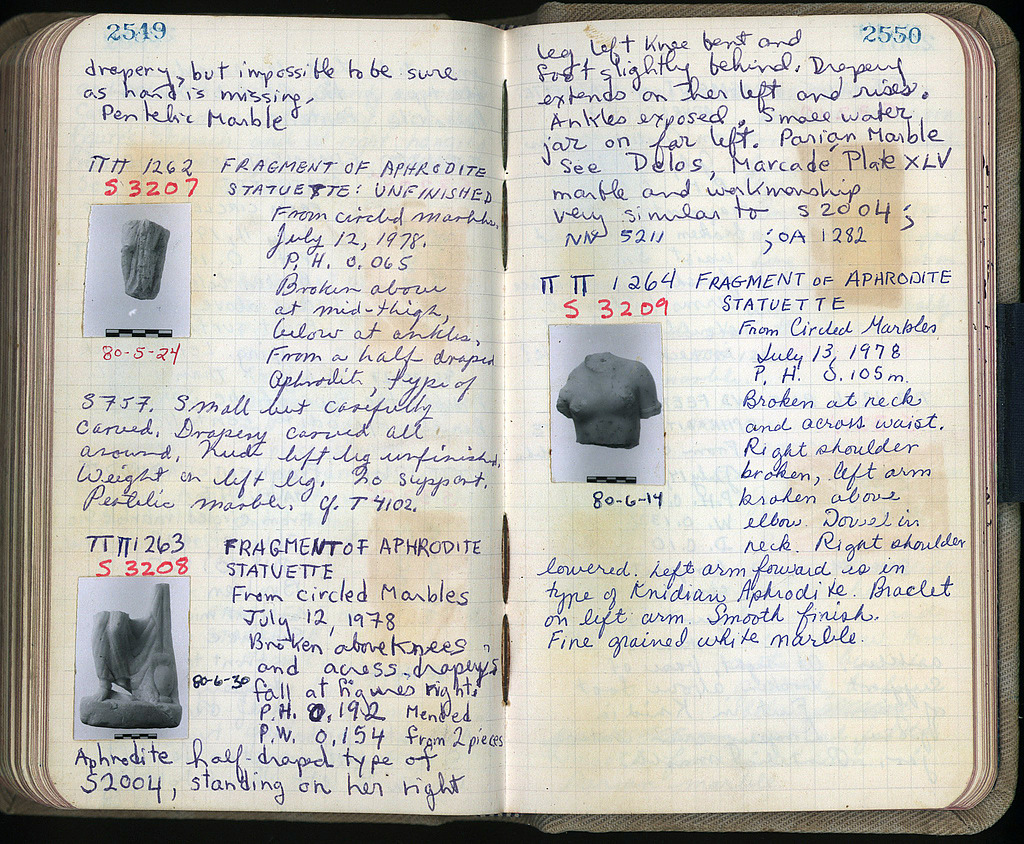 2549
drapery, but impossible to be sure
as hand is missing.
Pentelic Marble
ΠΠ 1262 FRAGMENT OF APHRODITE
S 3207 STATUETTE: UNFINISHED
From circled marbles.
July 12, 1978.
P. H. 0.065
Broken above
at mid-thigh,
below at ankles.
80-5-24
From a half draped
Aphrodite, type of
S757. Small but carefully
carved. Drapery carved all
around. Nude left leg unfinished.
Weight on left leg. No support.
Pentelic marble. Cf. T 4102.
ΠΠ 1263 FRAGMENT OF APHRODITE
S 3208 STATUETTE
From circled Marbles
July 12, 1978
Broken above Knees
and across drapery's
80-6-30
fall at figures right.
P.H. 0.192 Mended
P.W. 0.154 from 2 pieces
Aphrodite half-draped type of
S2004, standing on her right
2550
leg left Knee bent and
foot slightly behind. Drapery
extends on her left and rises.
Ankles exposed. Small water
jar on far left. Parian Marble
See Delos, Marcadé Plate XLV
marble and workmanship
very similar to S 2004;
NN 5211 ; OA 1282
ΠΠ 1264 FRAGMENT OF APHRODITE
S 3209 STATUETTE
From Circled Marbles
July 13, 1978
P. H. 0.105m.
Broken at neck
and across waist.
Right shoulder
broken, left arm
80-6-14
broken above
elbow. Dowel in
neck. Right shoulder
lowered. Left arm foward is in
type of Knidian Aphrodite. Braclet
on left arm. Smooth finish.
Fine grained white marble.